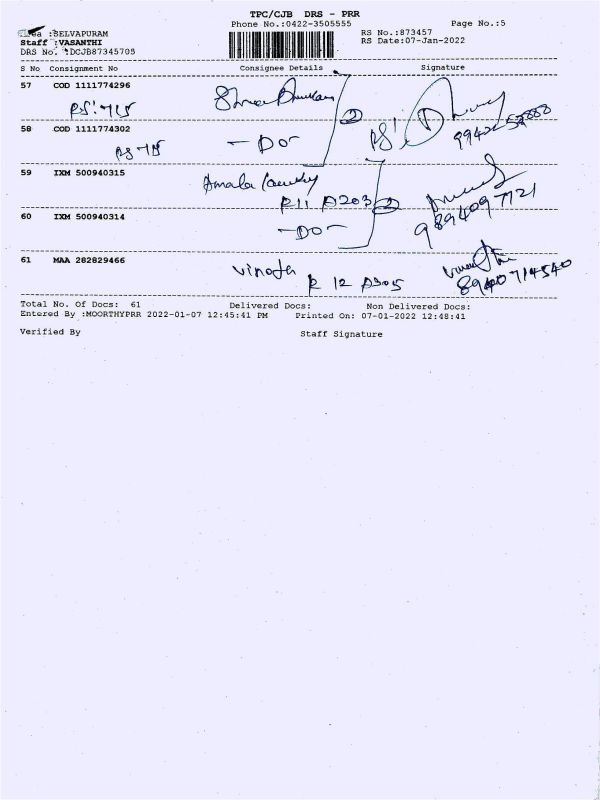 TPC/CJB DRS - PRR
Phone No.:0422-3505555 Page No.:5
RS No.:873457
Area :SELVAPURAM
Staff :VASANTHI RS Date:07-Jan-2022
DRS No. :DCJB87345705
S No Consignment No Consignee Details Signature
57 COD 1111774296
RS: 715
58 COD 1111774302 2
RS 715 - Do -
59 IXM 500940315
Amala
R11 A203 2
60 IXM 500940314 9894097121
- Do -
61 MAA 282829466
Vinoth R 12 A305 8940714540
Total No. Of Docs: 61 Delivered Docs: Non Delivered Docs:
Entered By :MOORTHYPRR 2022-01-07 12:45:41 PM Printed On: 07-01-2022 12:48:41
Verified By Staff Signature